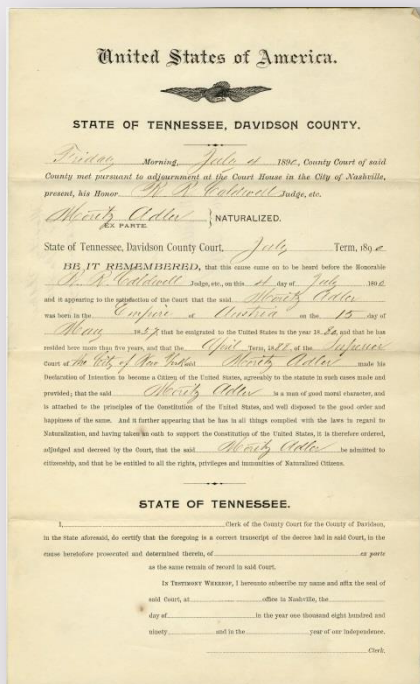 United States of America.
STATE OF TENNESSEE, DAVIDSON COUNTY.
Friday Morning, July 4 1890, County Court of said
County met pursuant to adjournment at the Court House in the City of Nashville,
present, his Honor R R Caldwell Judge, etc.
Moritz Adler } NATURALIZED.
EX PARTE.
State of Tennessee, Davidson County Court, July Term, 1890
BE IT REMEMBERED, that this cause came on to be heard before the Honorable
R. R. Caldwell Judge, etc., on this 4 day of July 1890
and it appearing to the satisfaction of the Court that the said Moritz Adler
was born in the Empire of Austria on the 15 day of
May 1857 that he emigrated to the United States in the year 1880, and that he has
resided here more than five years, and that the April Term, 1888. of the Superior
Court of the City of New York said Moritz Adler made his
Declaration of Intention to become a Citizen of the United States, agreeably to the statute in such cases made and
provided; that the said Moritz Adler is a man of good moral character, and
is attached to the principles of the Constitution of the United States, and well disposed to the good order and
happiness of the same. And it further appearing that he has in all things complied with the laws in regard to
Naturalization, and having taken an oath to support the Constitution of the United States, it is therefore ordered,
adjudged and decreed by the Court, that the said Moritz Adler be admitted to
citizenship, and that he be entitled to all the rights, privileges and immunities of Naturalized Citizens.
STATE OF TENNESSEE.
I, Clerk of the County Court for the County of Davidson,
in the State aforesaid, do certify that the foregoing is a correct transcript of the decree had in said Court, in the
cause heretofore prosecuted and determined therein, of ex parte
as the same remain of record in said Court.
IN TESTIMONY WHEREOF, I hereunto subscribe my name and affix the seal of
said Court, at office in Nashville, the
day of in the year one thousand eight hundred and
ninety and in the year of our Independence.
Clerk.